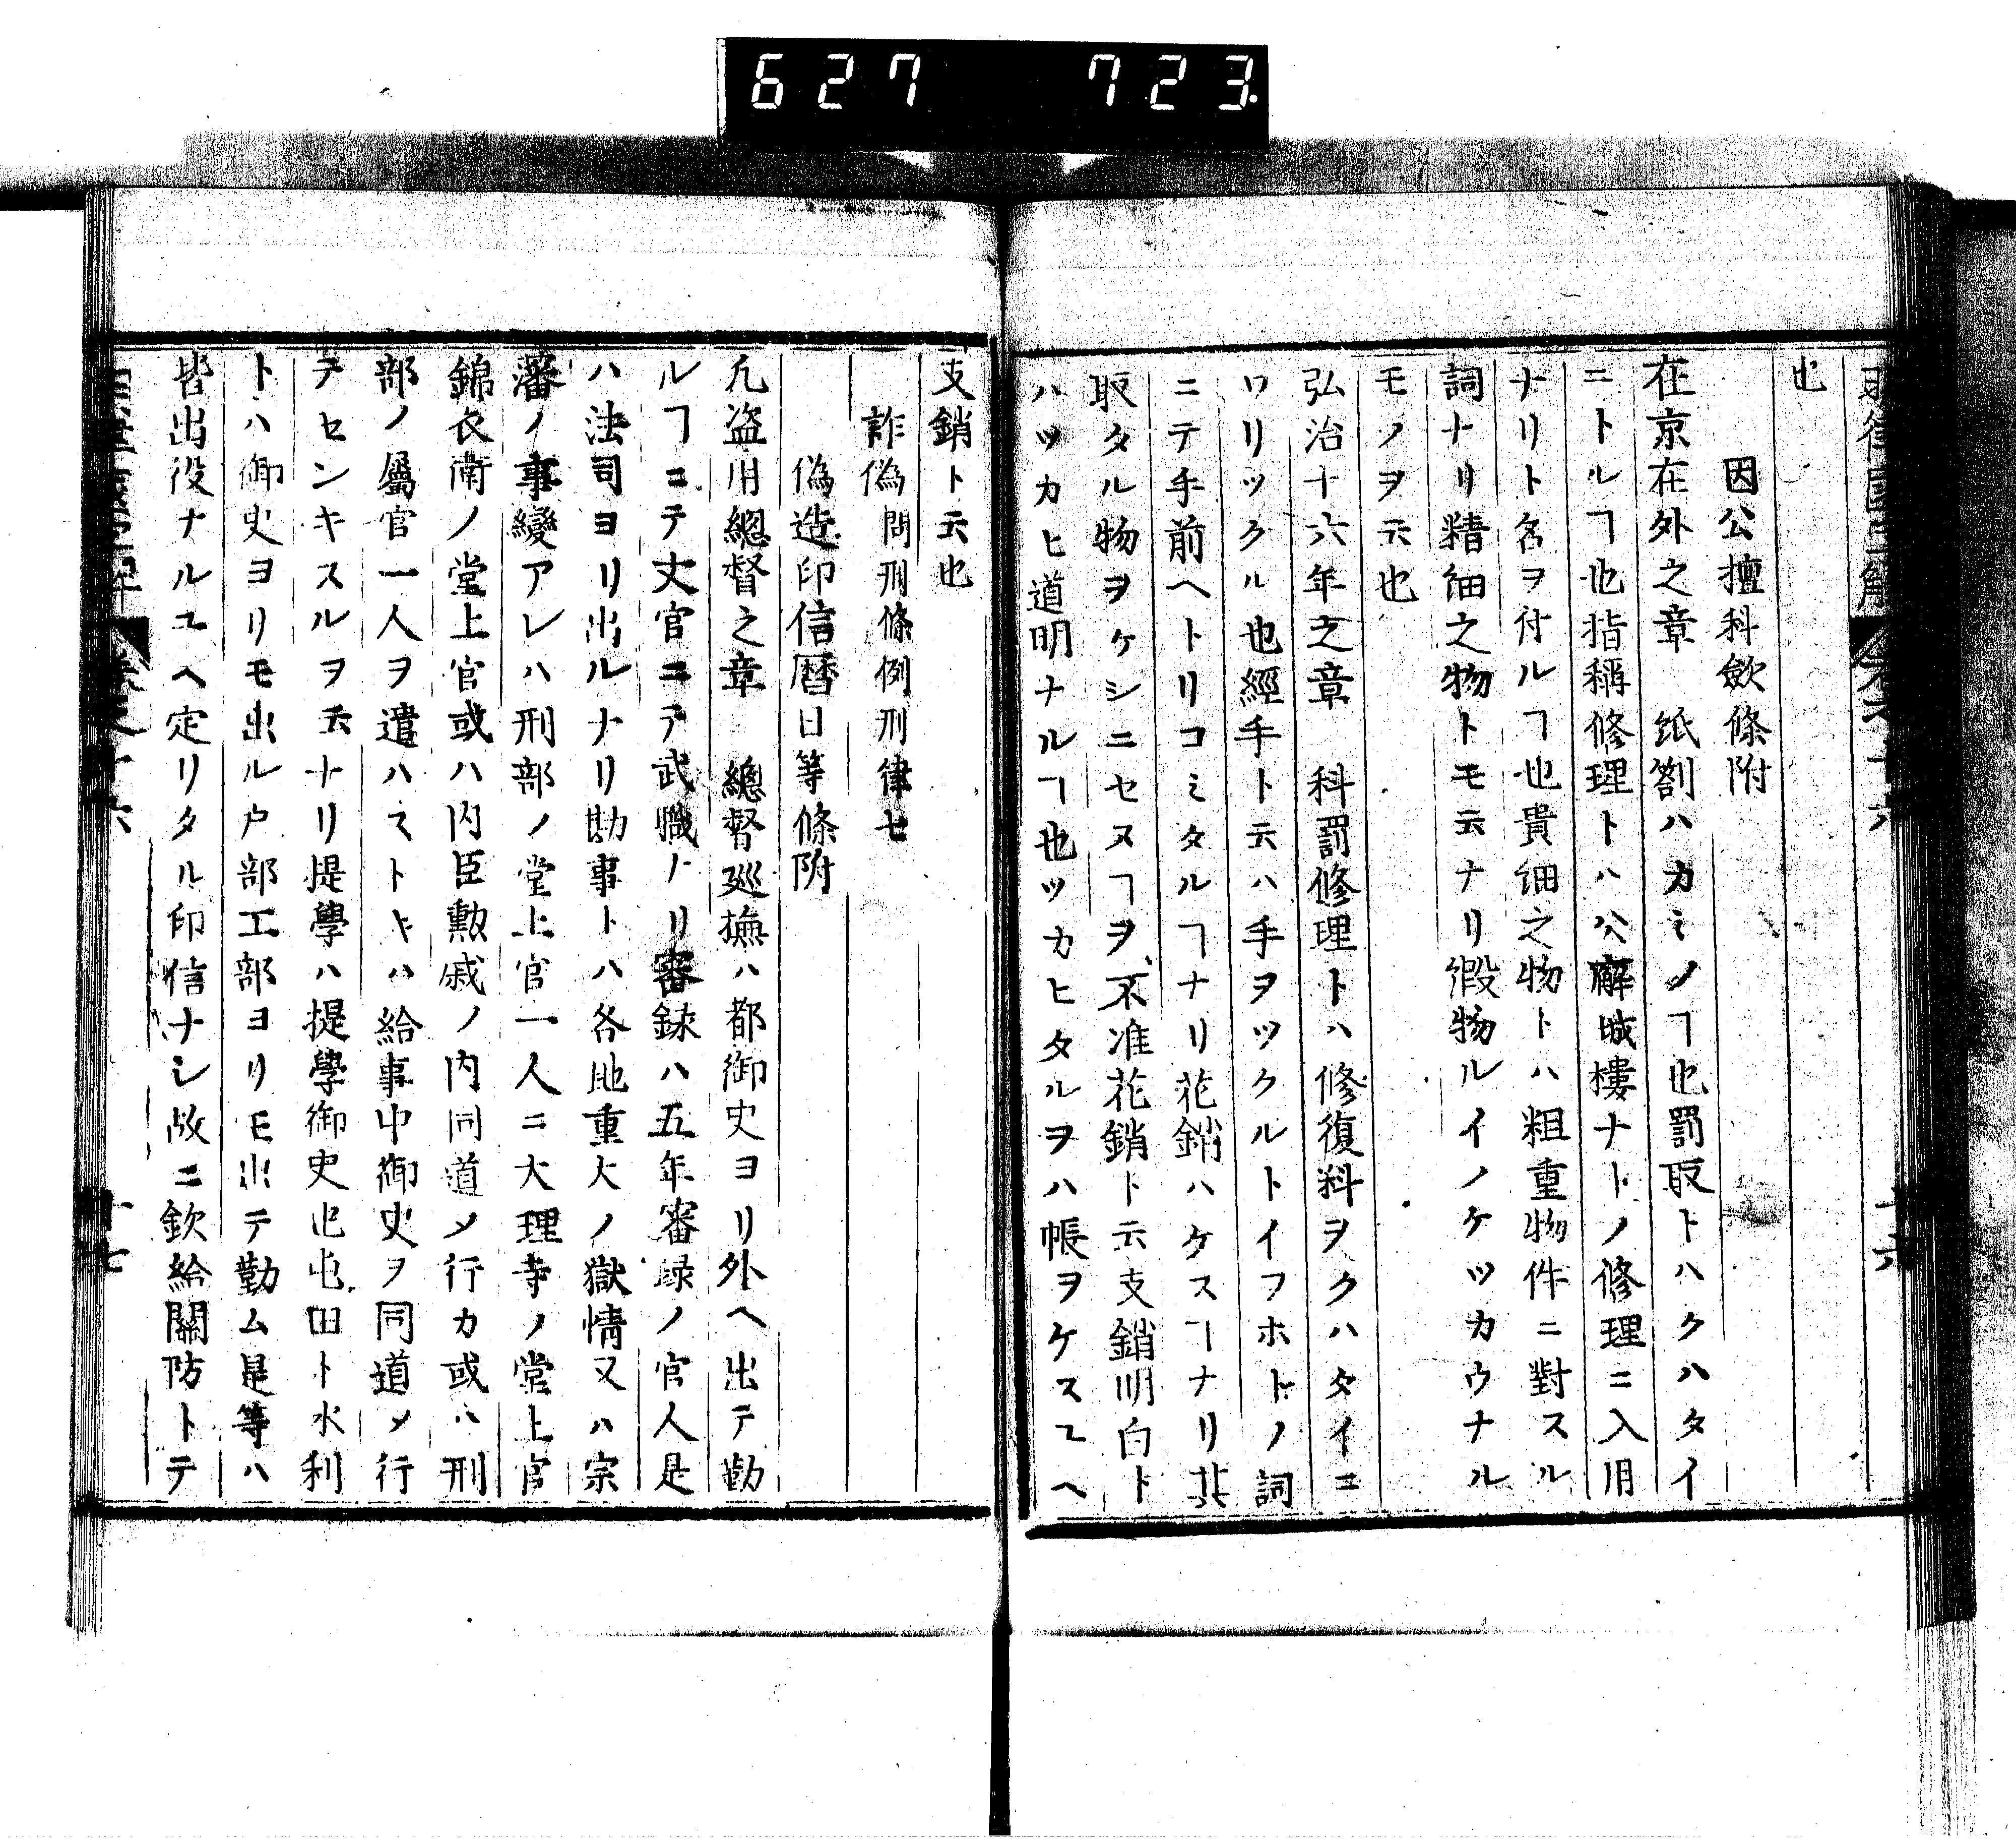 627 723
也
因公擅科斂條附
在京在外之章 紙劄ハカミノヿ也罰取トハクハタイ
ニトルヿ也指稱修理トハ公廨城樓ナトノ修理ニ入用
ナリト名ヲ付ルヿ也貴細之物トハ粗重物件ニ對スル
詞ナリ精細之物トモ云ナリ緞物ルイノケツカウナル
モノヲ云也
弘治十六年之章 科罰修理トハ修復料ヲクハタイニ
ワリツクル也經手ト云ハ手ヲツクルトイフホトノ詞
ニテ手前ヘトリコミタルヿナリ花銷ハケスヿナリ其
取タル物ヲケシニセヌヿヲ不准花銷ト云支銷明白ト
ハツカヒ道明ナルヿ也ツカヒタルヲハ帳ヲケスユヘ
支銷ト云也
詐偽 問刑條例刑律七
偽造印信曆日等條附
凡盗用總督之章 總督廵撫ハ都御史ヨリ外ヘ出テ勤
ルヿニテ文官ニテ武職ノリ審録ハ五年審録ノ官人是
ハ法司ヨリ出ルナリ勘事トハ各地重大ノ獄情又ハ宗
藩ノ事變アレハ刑部ノ堂上官一人ニ大理寺ノ堂上官
錦衣衛ノ堂上官或ハ内臣勲戚ノ内同道メ行カ或ハ刑
部ノ屬官一人ヲ遣ハストキハ給事中御史ヲ同道メ行
テセンキスルヲ云ナリ提學ハ提學御史也屯田ト水利
トハ御史ヨリモ出ル戸部工部ヨリモ出テ勤ム是等ハ
皆出役ナルユヘ定リタル印信ナシ故ニ欽給關防トテ